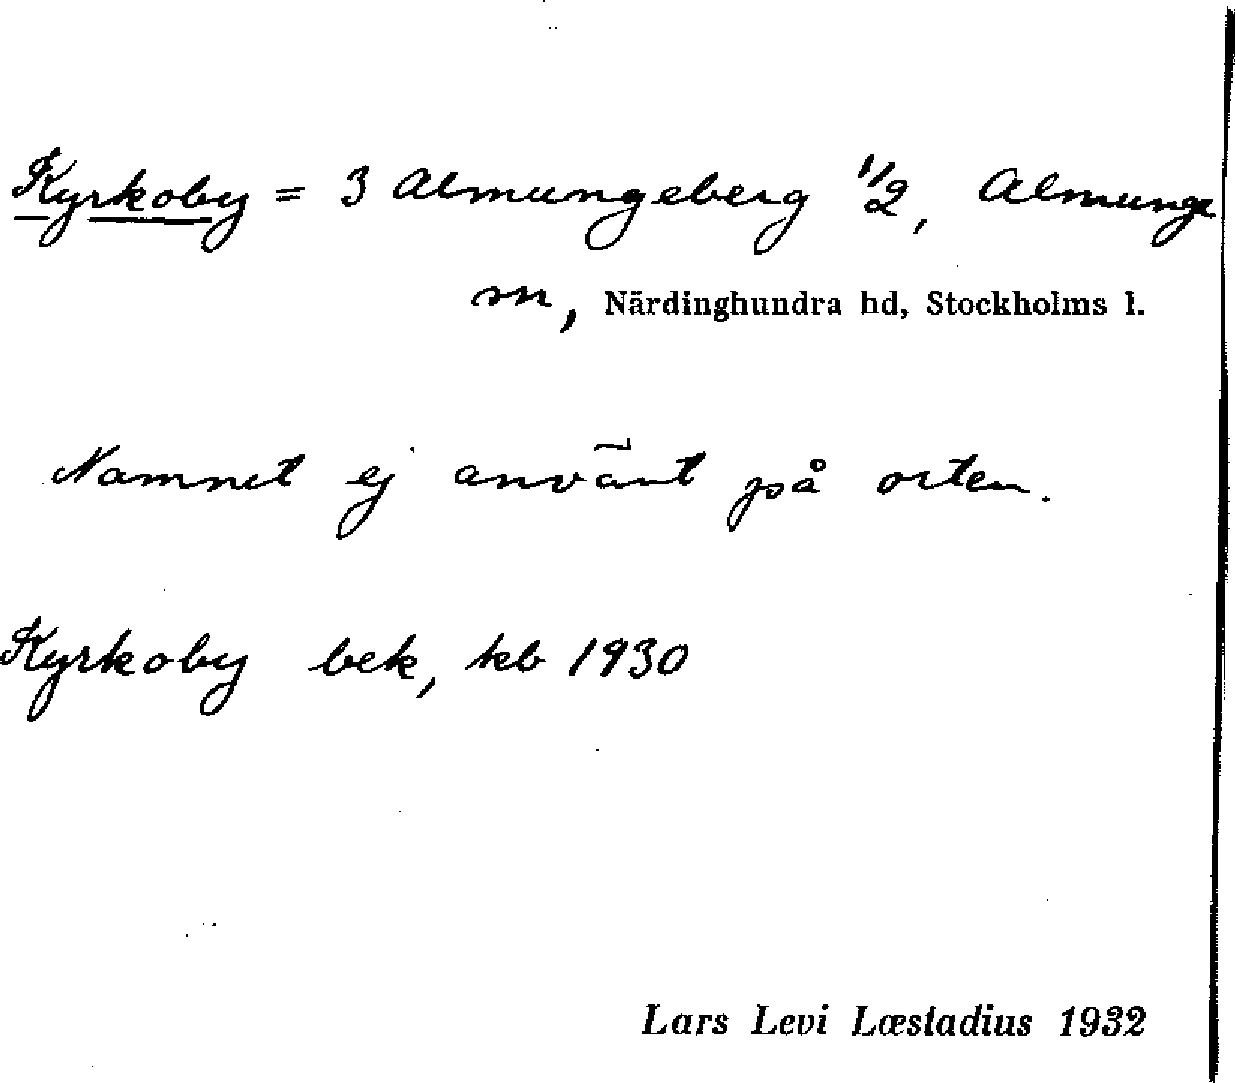 Kyrkoby = 3 Almungeberg 1/2, Almunge
sn, Närdinghundra hd, Stockholms l.
Namnet ej använt på orten.
Kyrkoby bek, kb 1930
Lars Levi Læstadius 1932